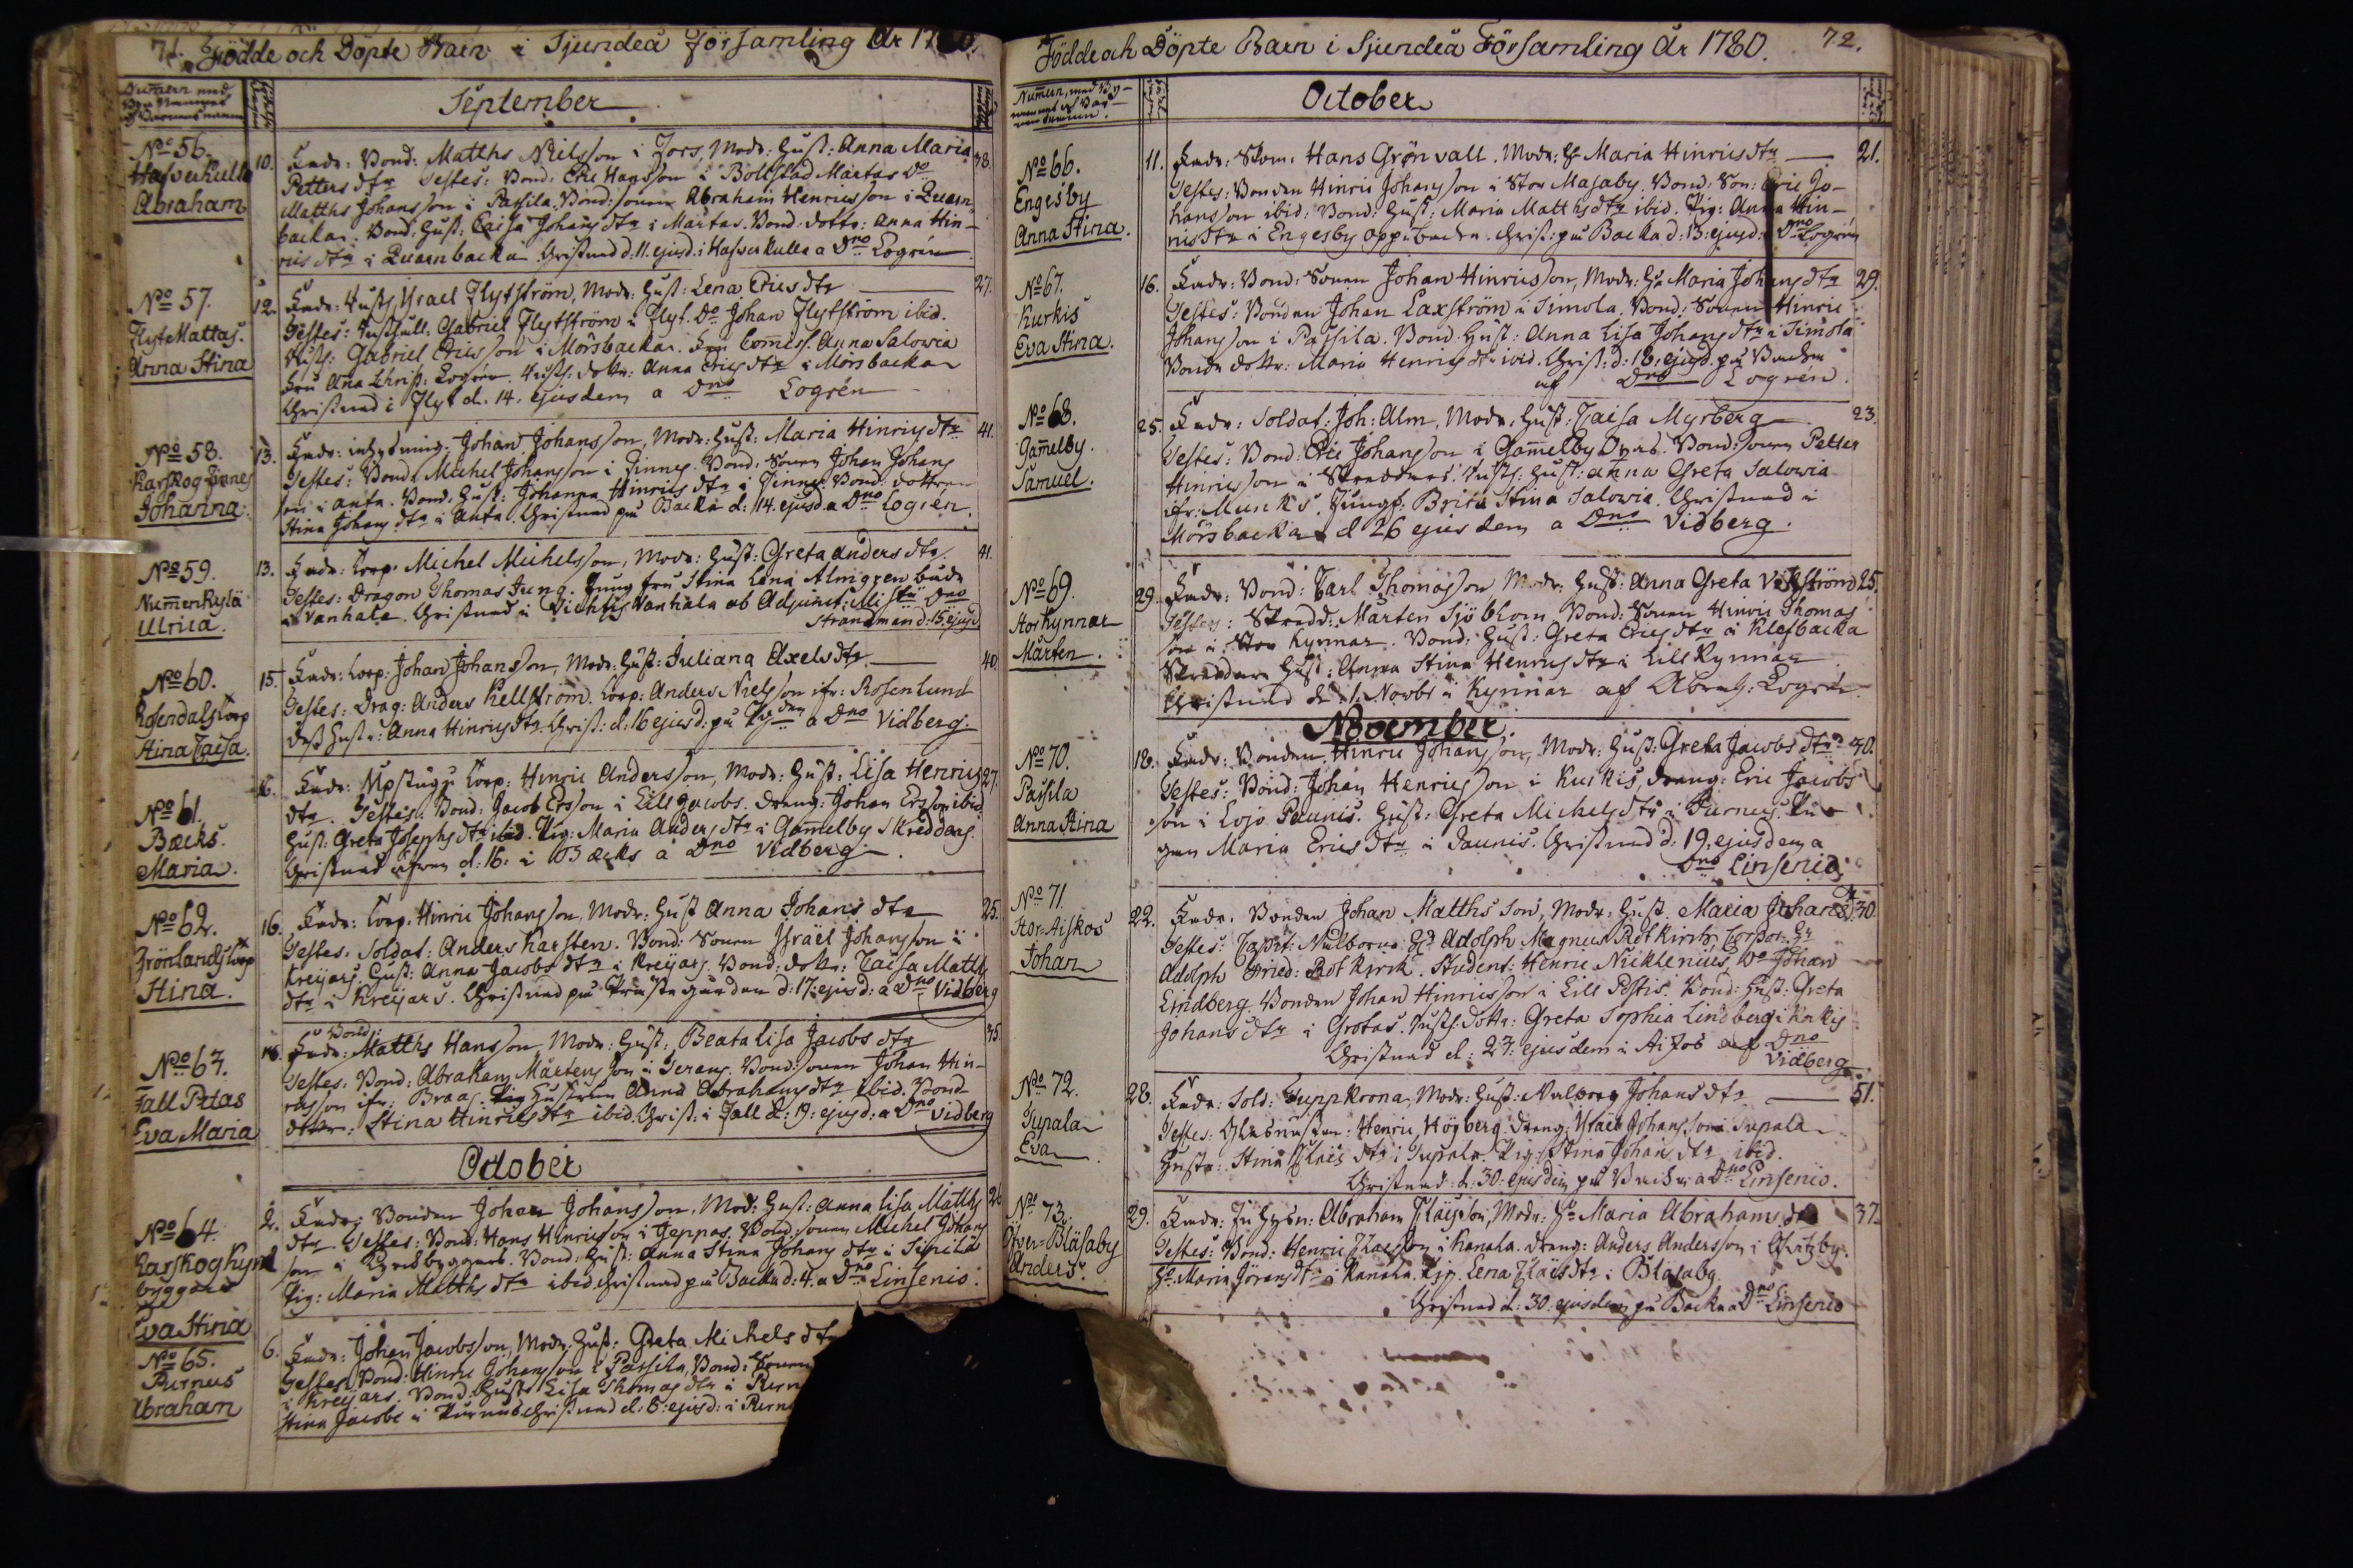 71. Födde och Döpte Barn i Sjundeå Församling År 17
September
No 56.
Hafverkulla
Abraham
10. Fadr: Bond: Matths Nilsson i Fors, Modr: Hust: Anna Maria 38.
Petters dtr Testes: Bond: Eric Hansson i Bollstad Mårtas Do
Matths Johansson i Passila. Bond: sonen Abraham Henricsson i Quarn
backa. Bond: Hust: Caisa Johans dtr i Mårtas. Bond: dottr: Anna Hin-
rics dtr i Quarnbacka Christnad d. 11. ejusd. i Hafverkulla a Dno Logrén
No 57.
Flyt Mattas.
Anna Stina
12. Fadr: Israel Flytström, Modr: Hust: Lena Erics dtr 27.
Testes: Gabriel Flytström i Flyt. Do Johan Flytström ibid.
Gabriel Ericsson i Mörsbacka. Anna Salovia
Logrén. dottr: Anna Erics dtr i Mörsbacka
Christnad i Flyt d. 14. ejusdem a Dno Logrén
No 58.
Karskog Finnes
Johanna
13. Fadr: Johan Johansson, Modr: Hust: Maria Hinrics dtr 41.
Testes: Bond: Michel Johansson i Finnes. Bond: Sonen Johan Johans
son i Anta. Bond: Hust: Johanna Hinrics dtr i Finnes Bond: dottren
Stina Johans dtr i Anta. Christnad på Backa d: 14. ejusd. a Dno Logrén.
No 59.
Num̅enkylä
Ulrica.
13. Fadr: Torp: Michel Michelsson, Modr: Hust: Greta Anders dtr. 41.
Testes: Dragon Thomas Jung. Jungfru Stina Lena Almgren både
i Vanhala. Christnad i Vichtis Vanhala ab Adjunct: Dno
Strandman d: 15. ejusd
No 60.
Rosendals torp
Stina Caisa.
15. Fadr: Torp: Johan Johansson, Modr: Hust: Juliana Axels dtr. 40.
Testes: Drag: Anders Kellström. Torp: Anders Nielsson ifr: Rosenlund
dess Hustr: Anna Hinrics dtr. Christ: d: 16 ejusd: på a Dno Vidberg.
No 61.
Bæcks.
Maria.
Fadr: Torp: Hinric Andersson, Modr: Hust: Lisa Henrics 27.
dtr. Testes: Bond: Jacob Ersson i Lill Jacobs. dräng: Johan Ersson ibid
Hust: Greta Josephs dtr ibid. Pig: Maria Anders dtr i Gam̅elby Skreddars.
Christnad d: 16: i Bæcks a Dno Vidberg.
No 62.
Grönlands torp
Stina.
16. Fadr: Torp: Hinric Johansson, Modr: Hust Anna Johans dtr 25.
Testes: Soldat: Anders Karsten. Bond: Sonen Israël Johansson i
Kreijars. Hust: Anna Jacobs dtr i Kreijars. Bond: dottr: Caisa Matths
dtr i Kreijars. Christnad på Prästegården d: 17 ejusd: a Dno Vidberg
No 63.
Fall Pettas
Eva Maria
Bond:
18. Fadr: Matths Hansson, Modr: Hust: Beata Lisa Jacobs dtr 35.
Testes: Bond: Abraham Mårtensson i Bond: sonen Johan Hin-
ricsson ifr: Hustrun Anna Abrahams dtr ibid. Bond
dottr: Stina Hinrics dtr ibid. Christ: i Fall d: 19: ejusd: a Dno Vidberg
October
No 64.
Karskog Kyrk
byggars
Eva Stina
2. Fadr: Bonden Johan Johansson, Mod: Hust: Anna Lisa Matths 26
dtr Testes: Bond: Hans Hinricsson i Jeppas. Bond: sonen Michel Johans
son i Kyrkbyggars. Bond: Hust: Anna Stina Johans dtr i
Pig: Maria Matths dtr ibid. Christnad på Backa d: 4. a Dno Linsenio.
No 65.
Purnus
Abraham
6. Fadr: Johan Jacobsson, Modr: Hust: Greta Michels dtr
Testes Bond: Hinric Johansson i Passila, Bond: Sonen
i Kreijars. Bond: Hustr Lisa Thomas dtr i Purn
Stina Jacobs i Purnus Christnad d: 8: ejusd: i Purn
Födde och Döpte Barn i Sjundeå Församling År 1780. 72.
October
No 66.
Engesby
Anna Stina.
11. Fadr: Skom: Hans Grönvall. Modr: H: Maria Hinrics dtr 21.
Testes: Bonden Hinric Johansson i Stor Masaby. Bond: Son: Eric Jo-
hansson ibid: Bond: Hust: Maria Matths dtr ibid. Pig: Anna Hin-
rics dtr i Engesby Christ: på Backa d: 13: ejusd: Dno Logrén
No 67.
Kurkis
Eva Stina.
16. Fadr: Bond: Sonen Johan Hinricsson, Modr: H: Maria Johans dtr 29.
Testes: Bonden Johan Laxström i Simola. Bond: Sonen Hinric
Johansson i Passila. Bond: Hust: Anna Lisa Johans dtr i Simola
Bonde dottr: Maria Henrics dtr ibid. Christ: d: 18: ejusd. på Backa
af Dno Logrén.
No 68.
Gam̅elby.
Samuel.
25. Fadr: Soldat: Joh: Alm, Modr: Hust: Caisa Myrberg 23.
Testes: Bond: Eric Johansson i Gam̅elby Bond: sonen Petter
Hinricsson i Hust: Anna Greta Salovia
ifr: Munks. Jungf: Brita Stina Salovia. Christnad i
Mörsbacka d 26 ejusdem a Dno Vidberg.
No 69.
Stor Kynnar
Mårten.
29. Fadr: Bond: Carl Thomasson, Modr: Hust: Anna Greta Vikström 25.
Testes: Skredd: Mårten Sjöblom, Bond: Sonen Hinric Thomas
son i Stor Kynnar. Bond: Hust: Greta Erics dtr i Klefbacka
Skreddare Hust: Anna Stina Henrics dtr i Lill Kynnar
Christnad d: 1. Novbr i Kynnar af Abrah: Logrén.
November
No 70.
Passila
Anna Stina
18. Fadr: Bonden Hinric Johansson, Modr: Hust: Greta Jacobs dtr 30.
Testes: Bond: Johan Henricsson i Kurkis, dräng: Eric Jacobs
son i Lojo Paunis. Hust: Greta Michels dtr i Purnus. Pi-
gan Maria Erics dtr i Paunis. Christnad d: 19. ejusdem a
Dno Linsenio
No 71.
Stor-Aiskos
Johan
22. Fadr. Bonden Johan Matths Son, Modr: Hust. Maria Johans dr 30.
Testes: Capit: Välborne H: Adolph Magnus Rotkirch, Corpor: Hr
Adolph Fried: Rotkirch. Student: Henric Nicklenius, Do Johan
Lindberg. Bonden Johan Hinricsson i Lill Postis. Bond: Hust: Greta
Johans dtr i Grotas. Dottr: Greta Sophia Lindberg i
Christnad d: 23: ejusdem i Aiskos af Dno
Vidberg
No 72.
Supala
Eva
28. Fadr: Sold: Suppkrona, Modr: Hust: Valborg Johans dtr 51.
Testes: Henric Högberg. Dräng: Israel Johansson i Supala
Hustr: Stina Claës dtr i Supala. Pig: Stina Johans dtr ibid.
Christnad: d: 30: ejusdem på Backa a Dno Linsenio.
No 73.
Öfver-Bläsaby
Anders.
29. Fadr: Abraham Claësson, Modr: H: Maria Abrahams dr 37.
Testes: Bond: Henric Claësson i Kanala. Dräng: Anders Andersson i
H: Maria Görans dtr i Kanala. Pig. Lena Claës dtr i Bläsaby
Christnad d: 30: ejusdem på Backa a Dno Linsenio